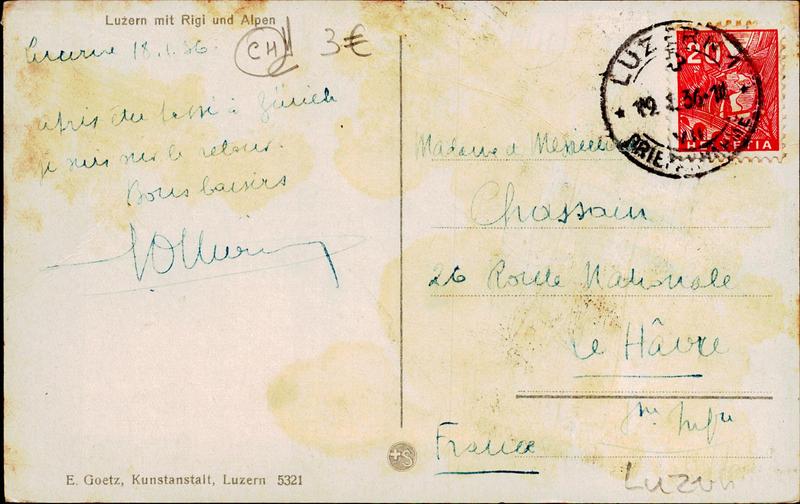 Luzern mit Rigi und Alpen
CH 3€
Lucerne 18.1.36
après être passé à Zürich
je suis sur le retour.
Bons baisers
LUZERN 1
19.1.36
BRIEFANNAHME
20
HELVETIA
Madame & Messieurs
Chassain
26 Route Nationale
Le Hâvre
Sne Infre
France
E. Goetz, Kunstanstalt, Luzern 5321
+S
Luzern